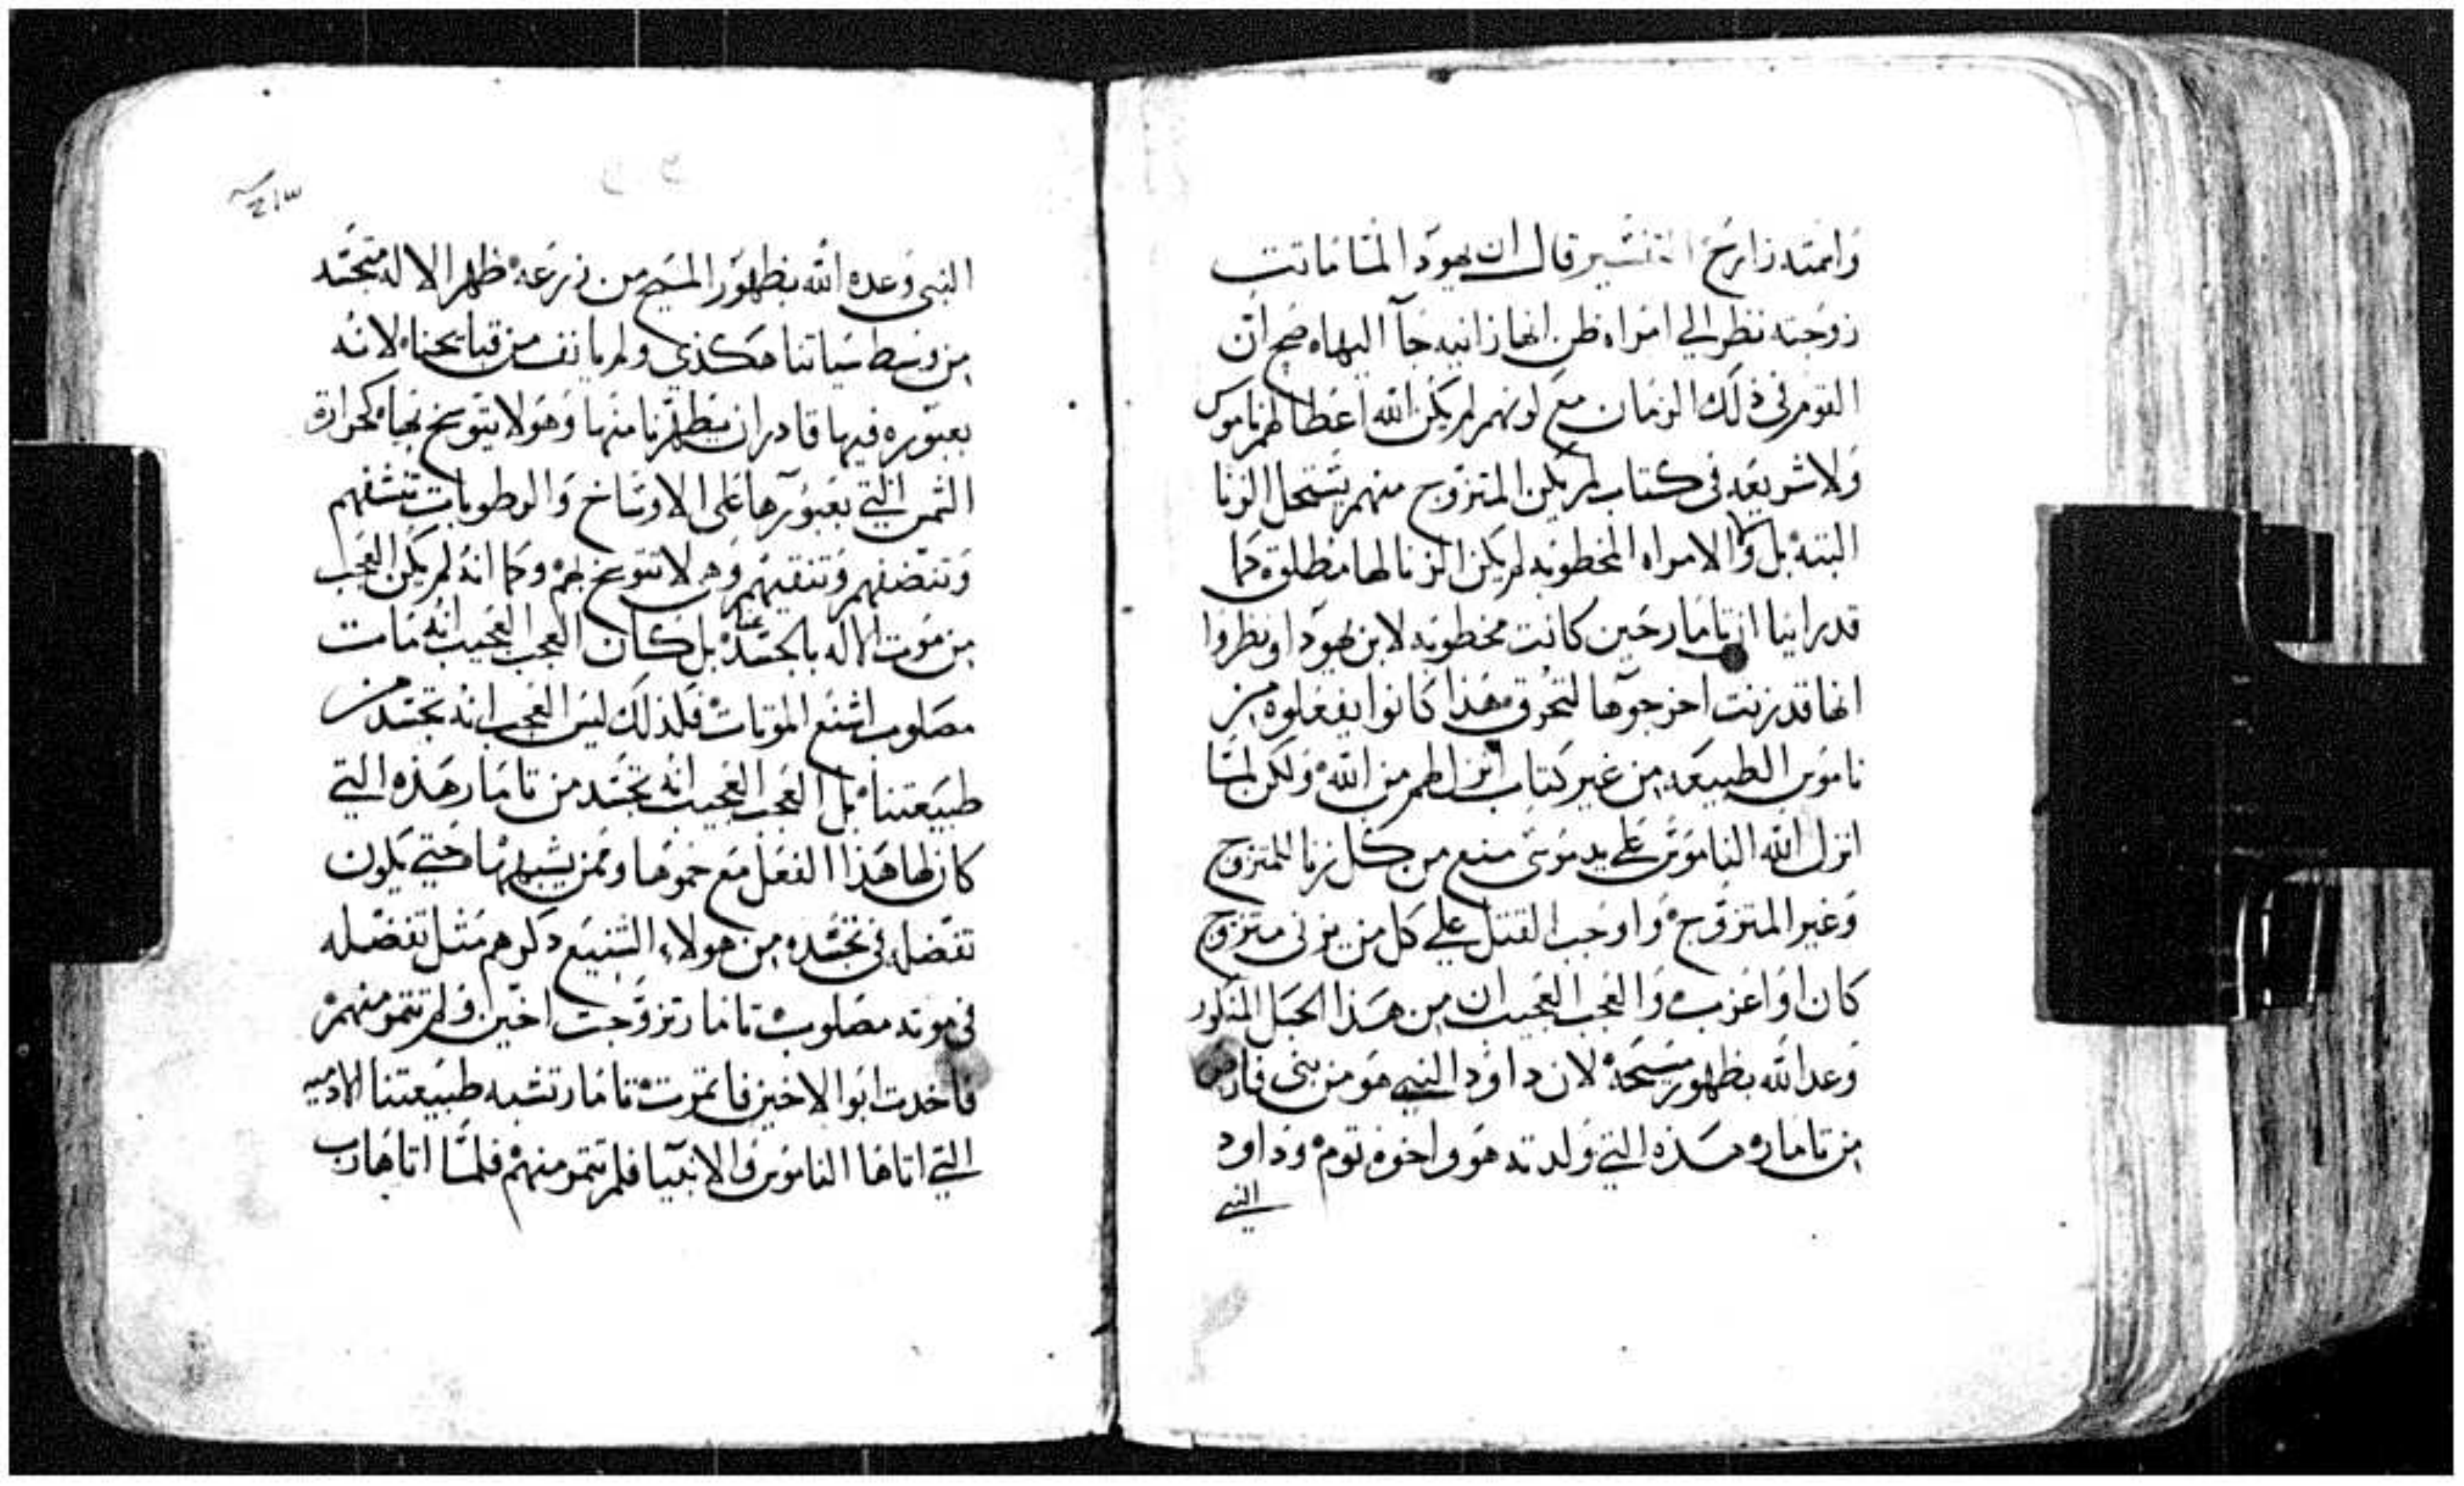 واسمه زارح التفسير قال ان يهودا لما ماتت
زوجته نظر الي امراه ظن انها زانيه جآ اليها ٥ صح ان
القوم في ذلك الزمان مع كونهم لم يكن الله اعطاهم ناموس
ولا شريعه في كتاب لم يكن المتزوج منهم يستحل الزنا
البته ٥ بل ولا الامراه المخطوبه لم يكن الزنا لها مطلق كما
قد راينا ان تامار حين كانت مخطوبه لابن يهودا ونظروا
انها قد زنت اخرجوها لتحرق ٥ هذا كانوا يفعلوه من
ناموس الطبيعه من غير كتاب انزل لهم من الله ٥ ولكن لما
انزل الله الناموس علي يد موسي منع من كل زنا للمتزوج
وغير المتزوج ٥ واوجب القتل علي كل من يزني متزوج
كان او اعزب ٥ والعجب العجيب ان من هذا الحبل المذكور
وعد الله بظهور مسيحه ٥ لان داود النبي هو من بني فارص
من تامار ٥ هذه التي ولدته هو واخوه توم ٥ وداود
النبي
٢١٣
النبي وعده الله بظهور المسيح من زرعه ٥ ظهر الاله متجسد
من وسط سياتنا هكذي ولم يانف من قبايحنا ٥ لانه
بعبوره فيها قادر ان يطهرنا منها وهو لا يتوسخ بها ٥ كحرارة
الشمس التي بعبورها علي الاوساخ والرطوبات تنشفهم
وتنضفهم وتنقيهم وهي لا تتوسخ بهم ٥ وكما انه لم يكن العجب
من موت الاله بالجسد عنا ٥ بل كان العجب العجيب انه مات
مصلوب اشنع الموتات ٥ فلذلك ليس العجب انه تجسد من
طبيعتنا ٥ بل العجب العجيب انه تجسد من تامار هذه التي
كان لها هذا الفعل مع حموها وممن يشبهها حتي يكون
تفضله في تجسده من هولاء الشنيع ذكرهم مثل تفضله
في موته مصلوب ٥ تامار تزوجت اخين ولم تتمر منهم ٥
فاخدت ابو الاخين فاتمرت ٥ تامار تشبه طبيعتنا الادميه
التي اتاها الناموس والانبيآ فلم تتمر منهم ٥ فلما اتاها رب